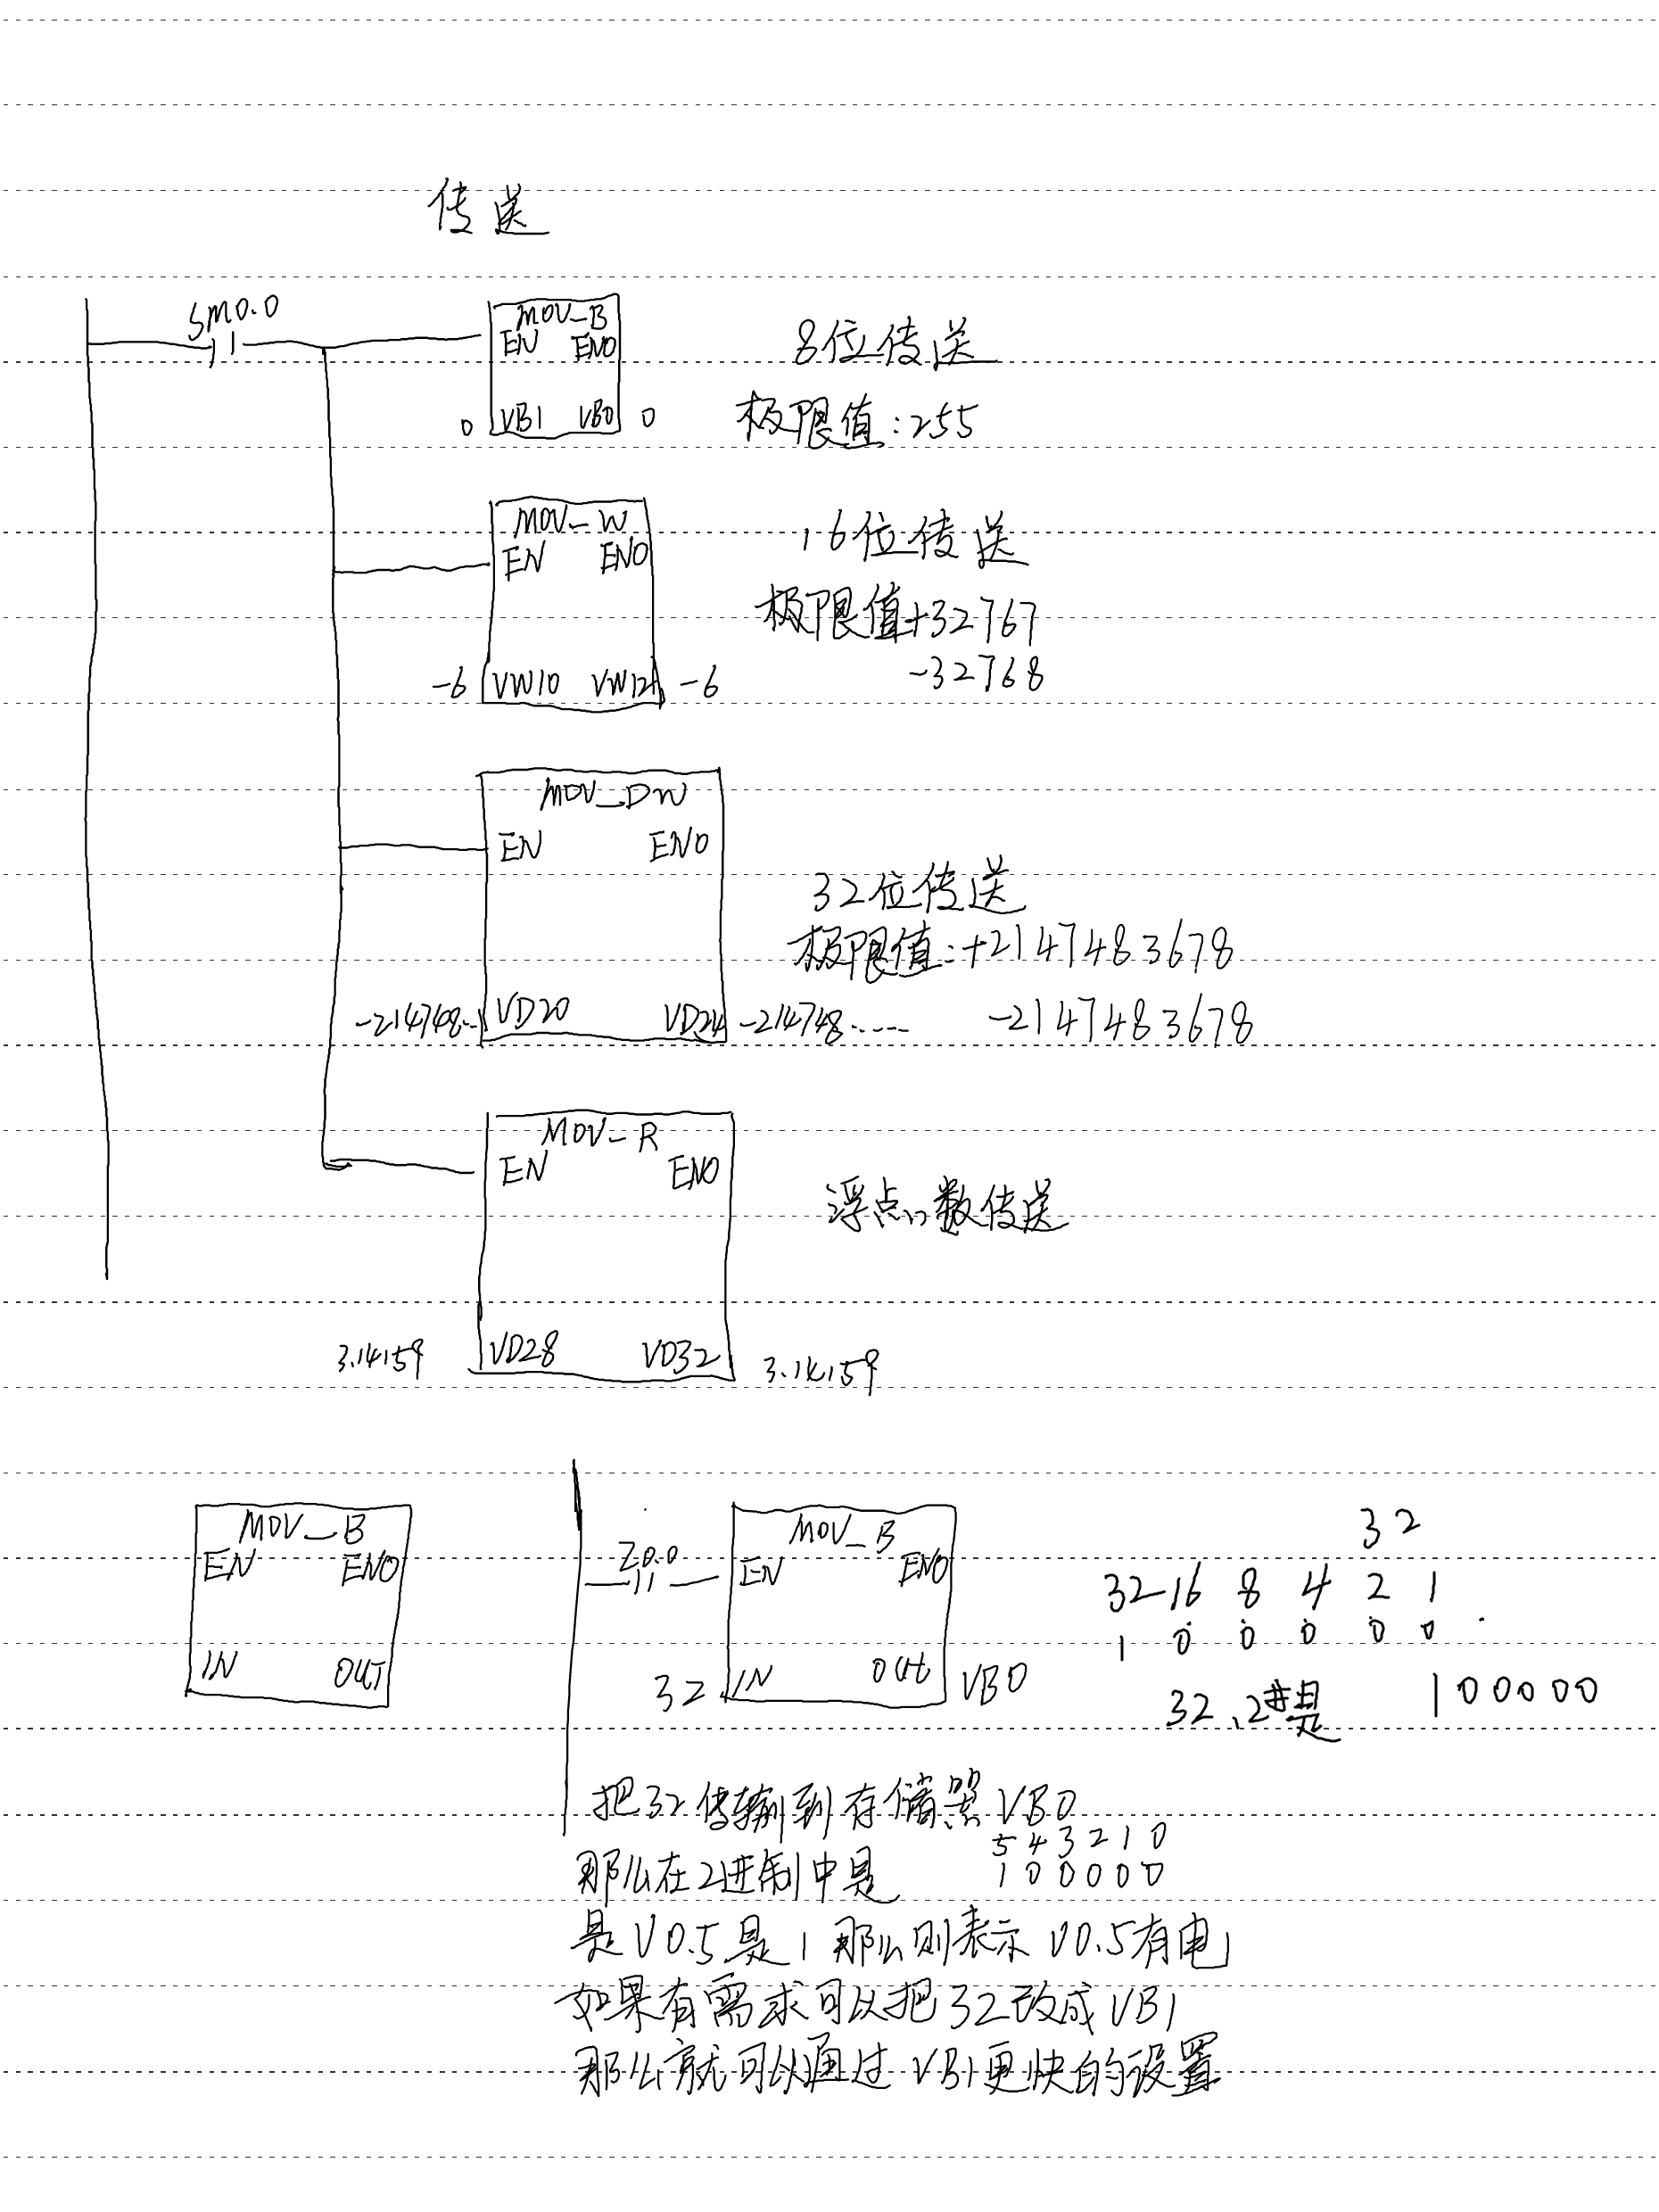 传送
SM0.0
MOV_B
EN ENO
8位传送
0 VB1 VB0 0
极限值:255
MOV_W
EN ENO
16位传送
极限值+32767
-32768
-6 VW10 VW12 -6
MOV_DW
EN ENO
32位传送
极限值:+2147483678
-214748... VD20 VD24 -214748.....
-2147483678
MOV_R
EN ENO
浮点数传送
3.14159 VD28 VD32 3.14159
MOV_B
EN ENO
IN OUT
I0.0
MOV_B
EN ENO
32 IN OUt VB0
32
32 16 8 4 2 1
1 0 0 0 0 0
32 2进是 100000
把32传输到存储器VB0
5 4 3 2 1 0
那么在2进制中是 1 0 0 0 0 0
是V0.5是1 那么则表示 V0.5有电
如果有需求可以把32改成VB1
那么就可以通过VB1更快的设置